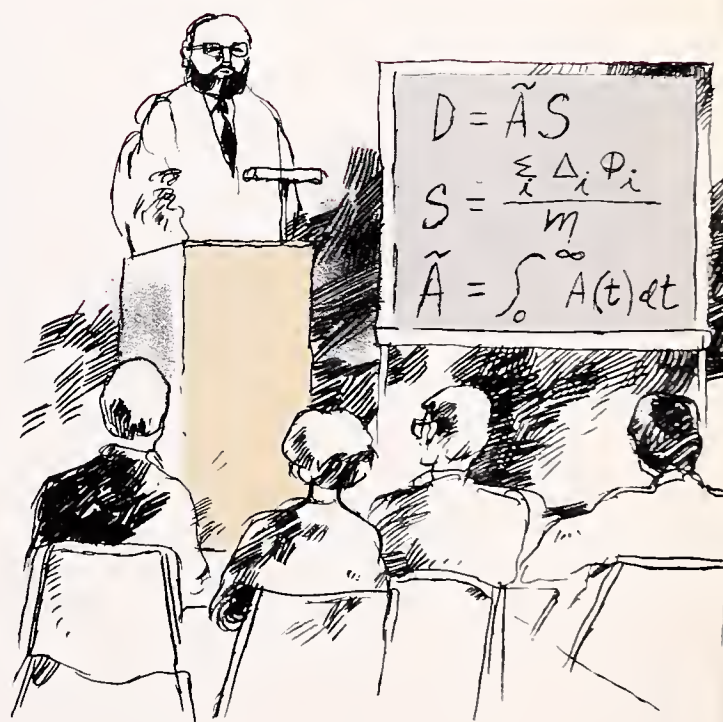 D = Ã S
S = Σ_i Δ_i Φ_i / m
Ã = ∫_0^∞ A(t) dt